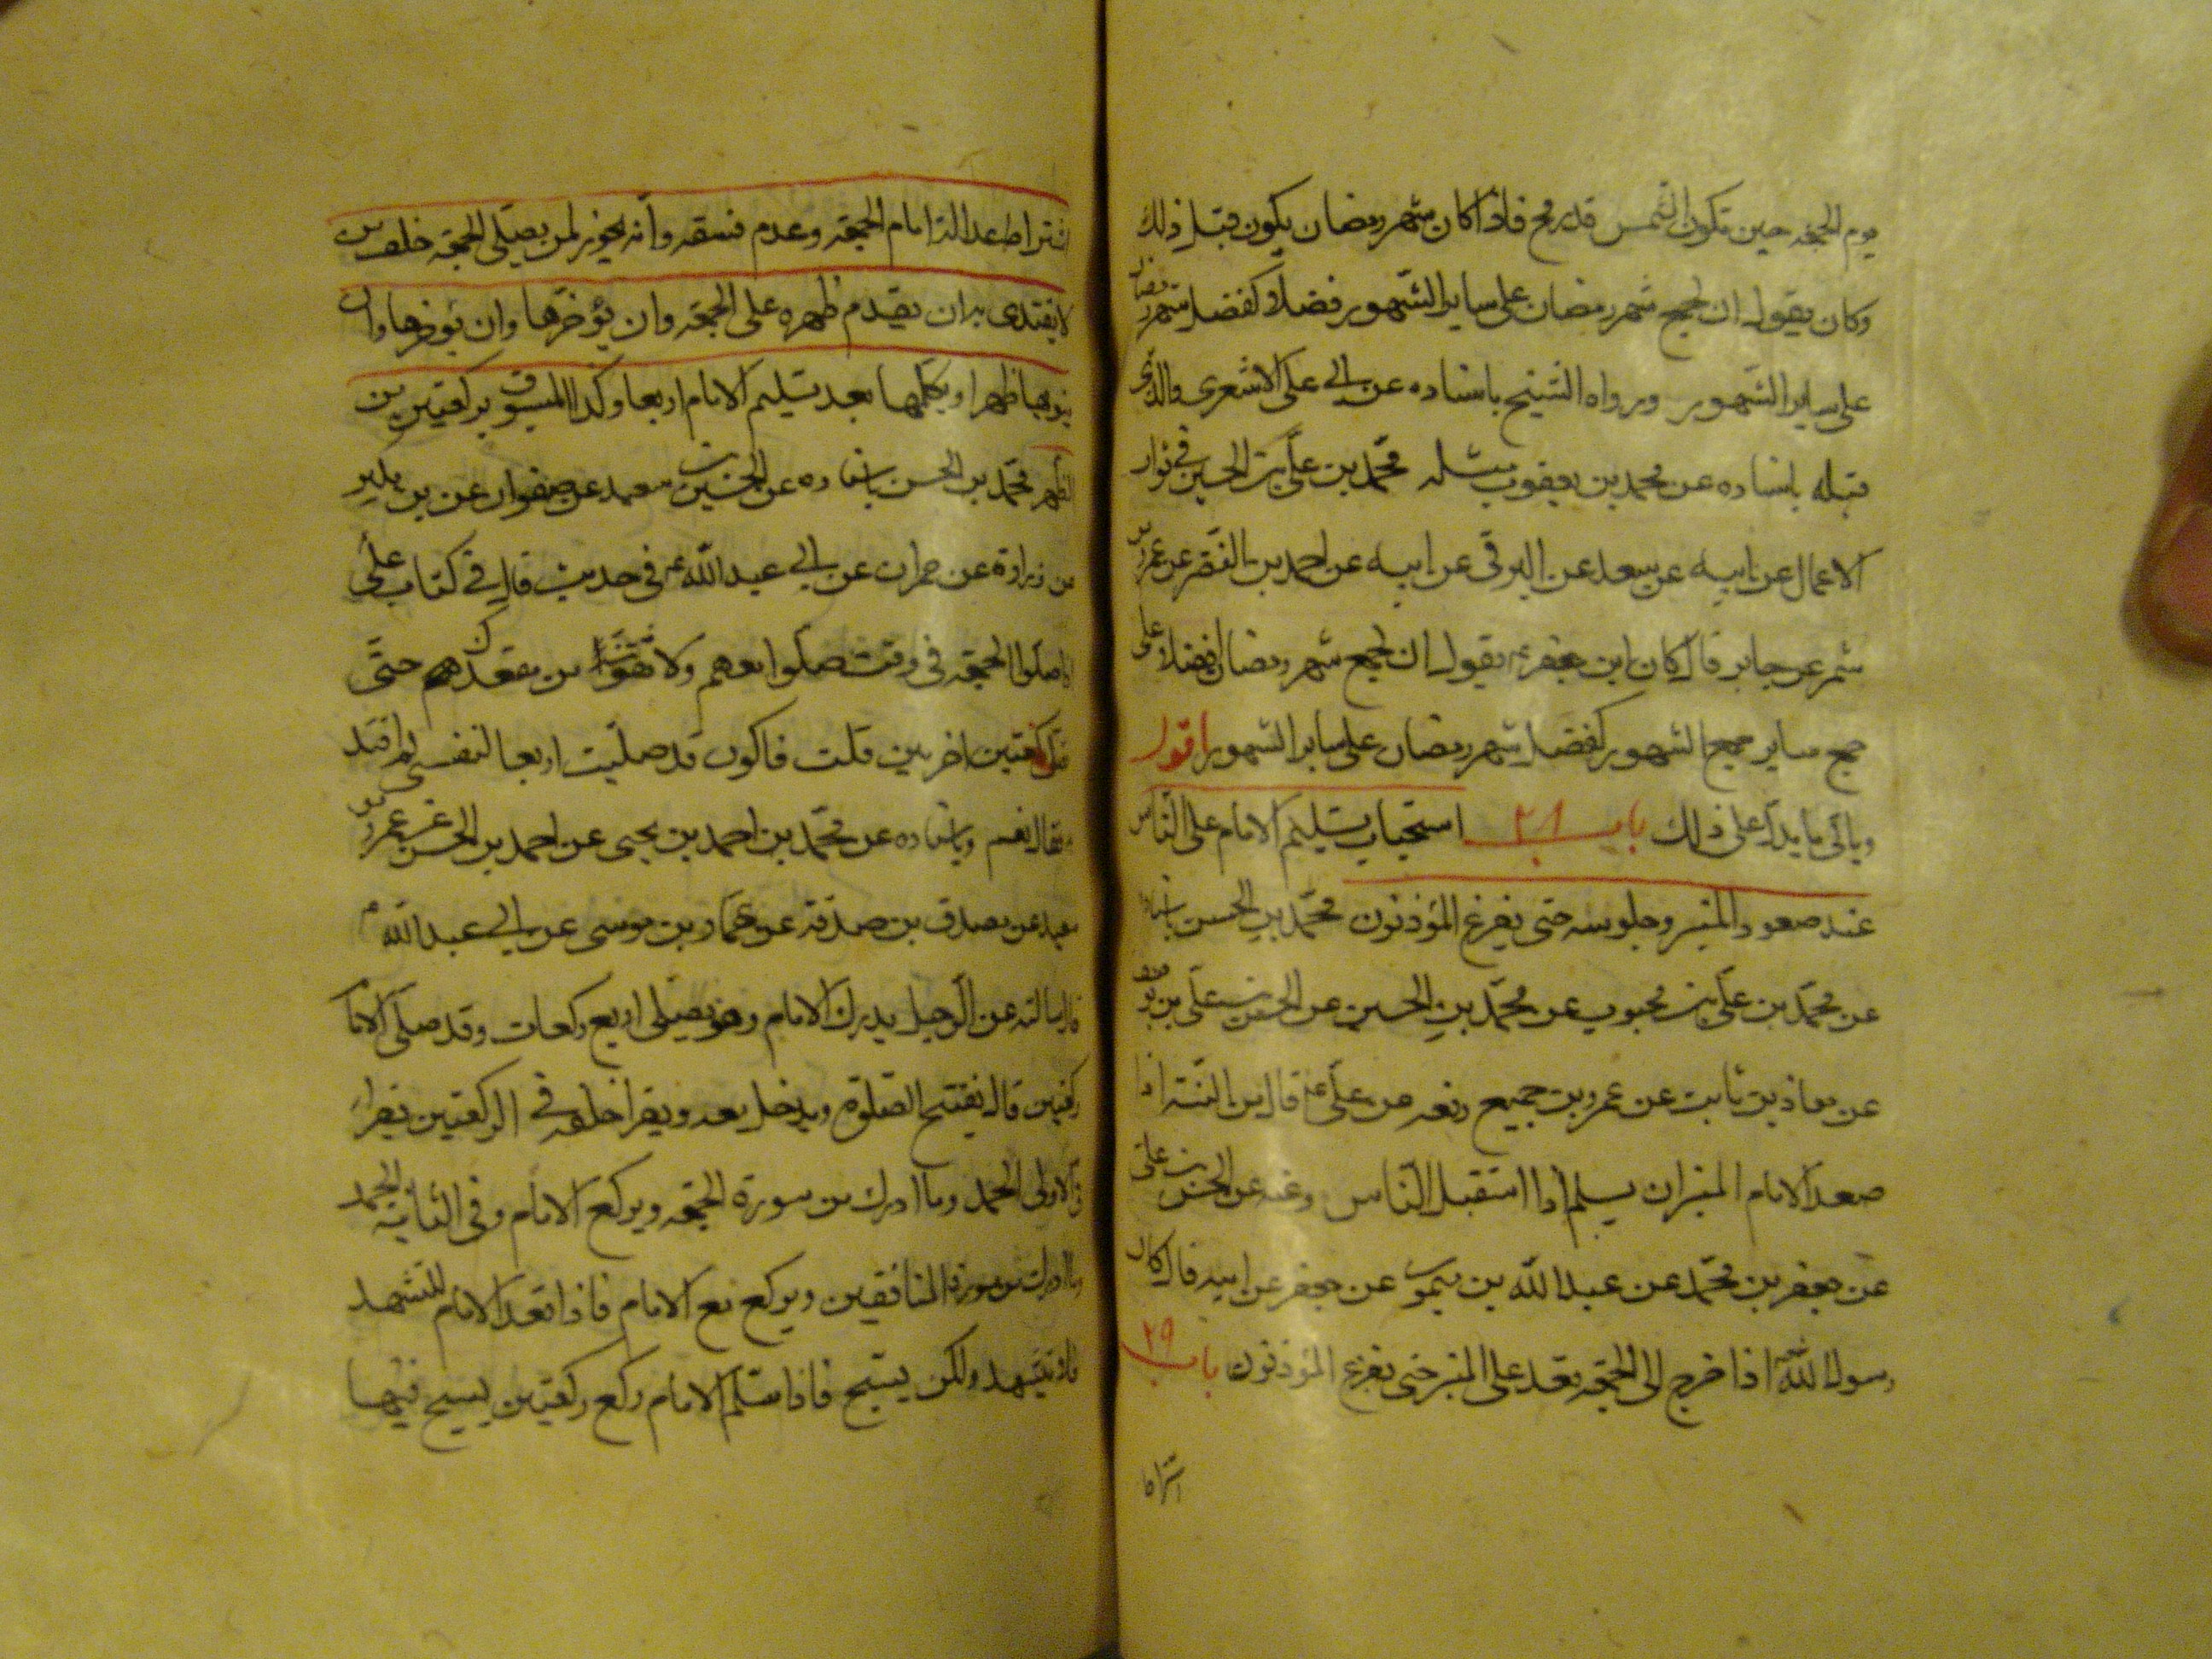 يوم الجمعة حين تكون الشمس قدر رمح فاذا كان شهر رمضان يكون قبل ذلك
وكان يقول ان لجمع شهر رمضان على ساير الشهور فضلا كفضل شهر رمضان
على ساير الشهور ورواه الشيخ باسناده عن ابى على الاشعرى والذى
قبله باسناده عن محمد بن يعقوب مثله محمد بن على بن الحسين فى ثواب
الاعمال عن ابيه عن سعد عن البرقى عن ابيه عن احمد بن النضر عن عمرو بن
شمر عن جابر قال كان ابو جعفر ع يقول ان لجمع شهر رمضان لفضلا على
جمع ساير جميع الشهور كفضل شهر رمضان على ساير الشهور اقول
وياتى ما يدل على ذلك باب ٢٨ استحباب تسليم الامام على الناس
عند صعود المنبر وجلوسه حتى يفرغ المؤذنون محمد بن الحسن باسناده
عن محمد بن على بن محبوب عن محمد بن الحسين عن الحسن بن على بن يوسف
عن معاذ بن ثابت عن عمرو بن جميع رفعه عن على ع قال من السنة اذا
صعد الامام المنبر ان يسلم اذا استقبل الناس وعنه عن الحسن بن على
عن جعفر بن محمد عن عبد الله بن ميمون عن جعفر عن ابيه قال كان
رسول الله اذا خرج الى الجمعة قعد على المنبر حتى يفرغ المؤذنون باب ٢٩
اشتراط عدالة امام الجمعة وعدم فسقه وانه يجوز لمن يصلى الجمعة خلف من
لا يقتدى به ان يقدم ظهره على الجمعة وان يؤخرها وان
ينويها ظهرا ويكملها بعد تسليم الامام اربعا وكذا المسبوق بركعتين من
الظهر محمد بن الحسن باسناده عن الحسين بن سعيد عن صفوان عن بن بكير
عن زرارة عن حمران عن ابى عبد الله ع فى حديث قال فى كتاب على
اذا صلوا الجمعة فى وقت فصلوا معهم ولا تقومن من مقعدك حتى
تصلى ركعتين اخريين قلت فاكون قد صليت اربعا لنفسى لم اقتد
به فقال نعم وباسناده عن محمد بن احمد بن يحيى عن احمد بن الحسن عن عمرو بن
سعيد عن مصدق بن صدقة عن عمار بن موسى عن ابى عبد الله ع
قال سالته عن الرجل يدرك الامام وهو يصلى اربع ركعات وقد صلى الامام
ركعتين قال يفتتح الصلوة ويدخل معه ويقرا خلفه فى الركعتين يقرا
فى الاولى الحمد وما ادرك من سورة الجمعة ويركع الامام وفى الثانية الحمد
وما ادرك من سورة المنافقين ويركع مع الامام فاذا قعد الامام للتشهد
فلا يتشهد ولكن يسبح فاذا سلم الامام ركع ركعتين يسبح فيهما